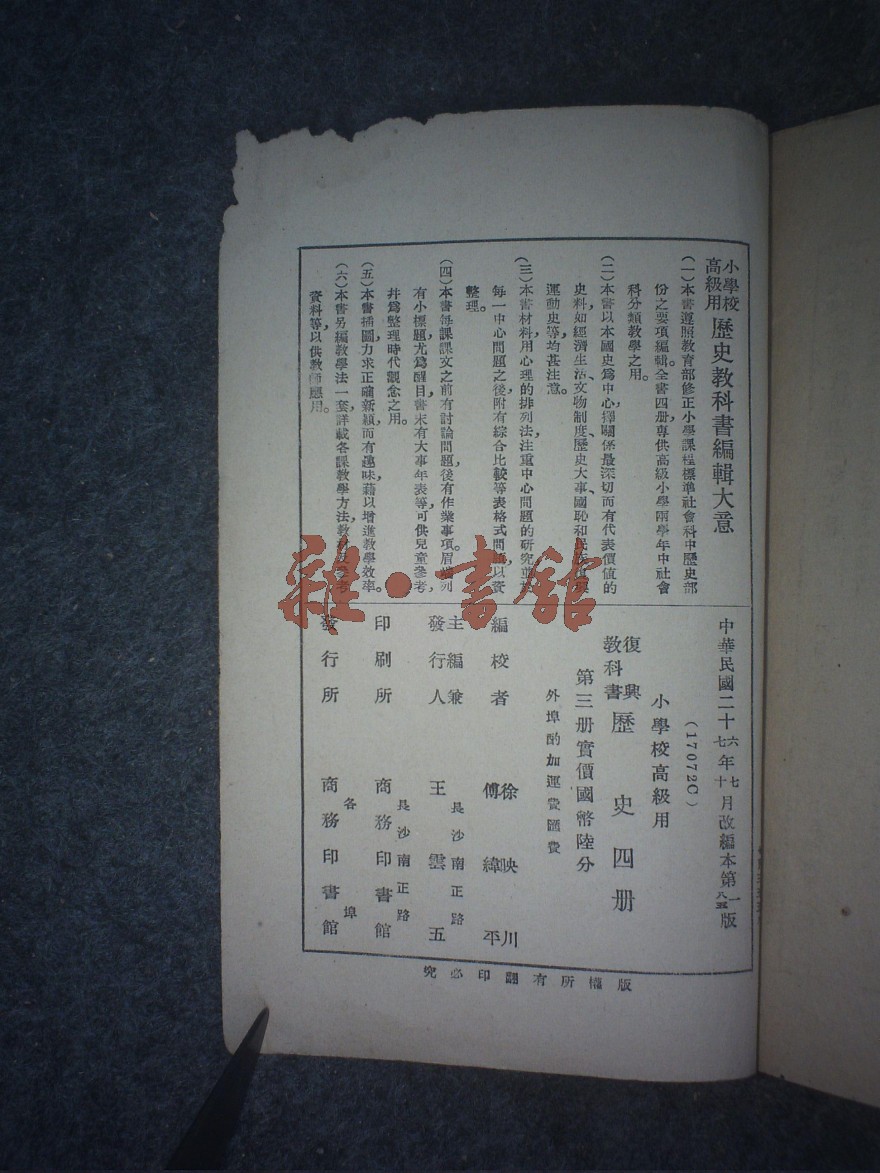 小學校高級用 歷史教科書編輯大意
(一)本書遵照教育部修正小學課程標準社會科中歷史部
份之要項編輯。全書四册,專供高級小學兩學年中社會
科分類教學之用。
(二)本書以本國史爲中心,擇關係最深切而有代表價值的
史料,如經濟生活、文物制度、歷史大事、國恥和民族
運動史等,均甚注意。
(三)本書材料用心理的排列法,注重中心問題的研究,並
每一中心問題之後,附有綜合比較等表格式問題,以資
整理。
(四)本書每課課文之前有討論問題,後有作業事項。眉端列
有小標題,尤爲醒目。書末有大事年表等,可供兒童參考,
并爲整理時代觀念之用。
(五)本書插圖力求正確新穎而有趣味,藉以增進教學效率。
(六)本書另編教學法一套,詳載各課教學方法,教材參考
資料等,以供教師應用。
中華民國二十六年七月改編本第一版
二十七年十月改編本第八五版
(17072C)
小學校高級用
復興教科書 歷史四册
第三册實價國幣陸分
外埠酌加運費匯費
編校者 徐映川 傅緯平
主編兼發行人 王雲五
長沙南正路
印刷所 商務印書館
長沙南正路
發行所 商務印書館
各埠
版權所有翻印必究
雜·書館